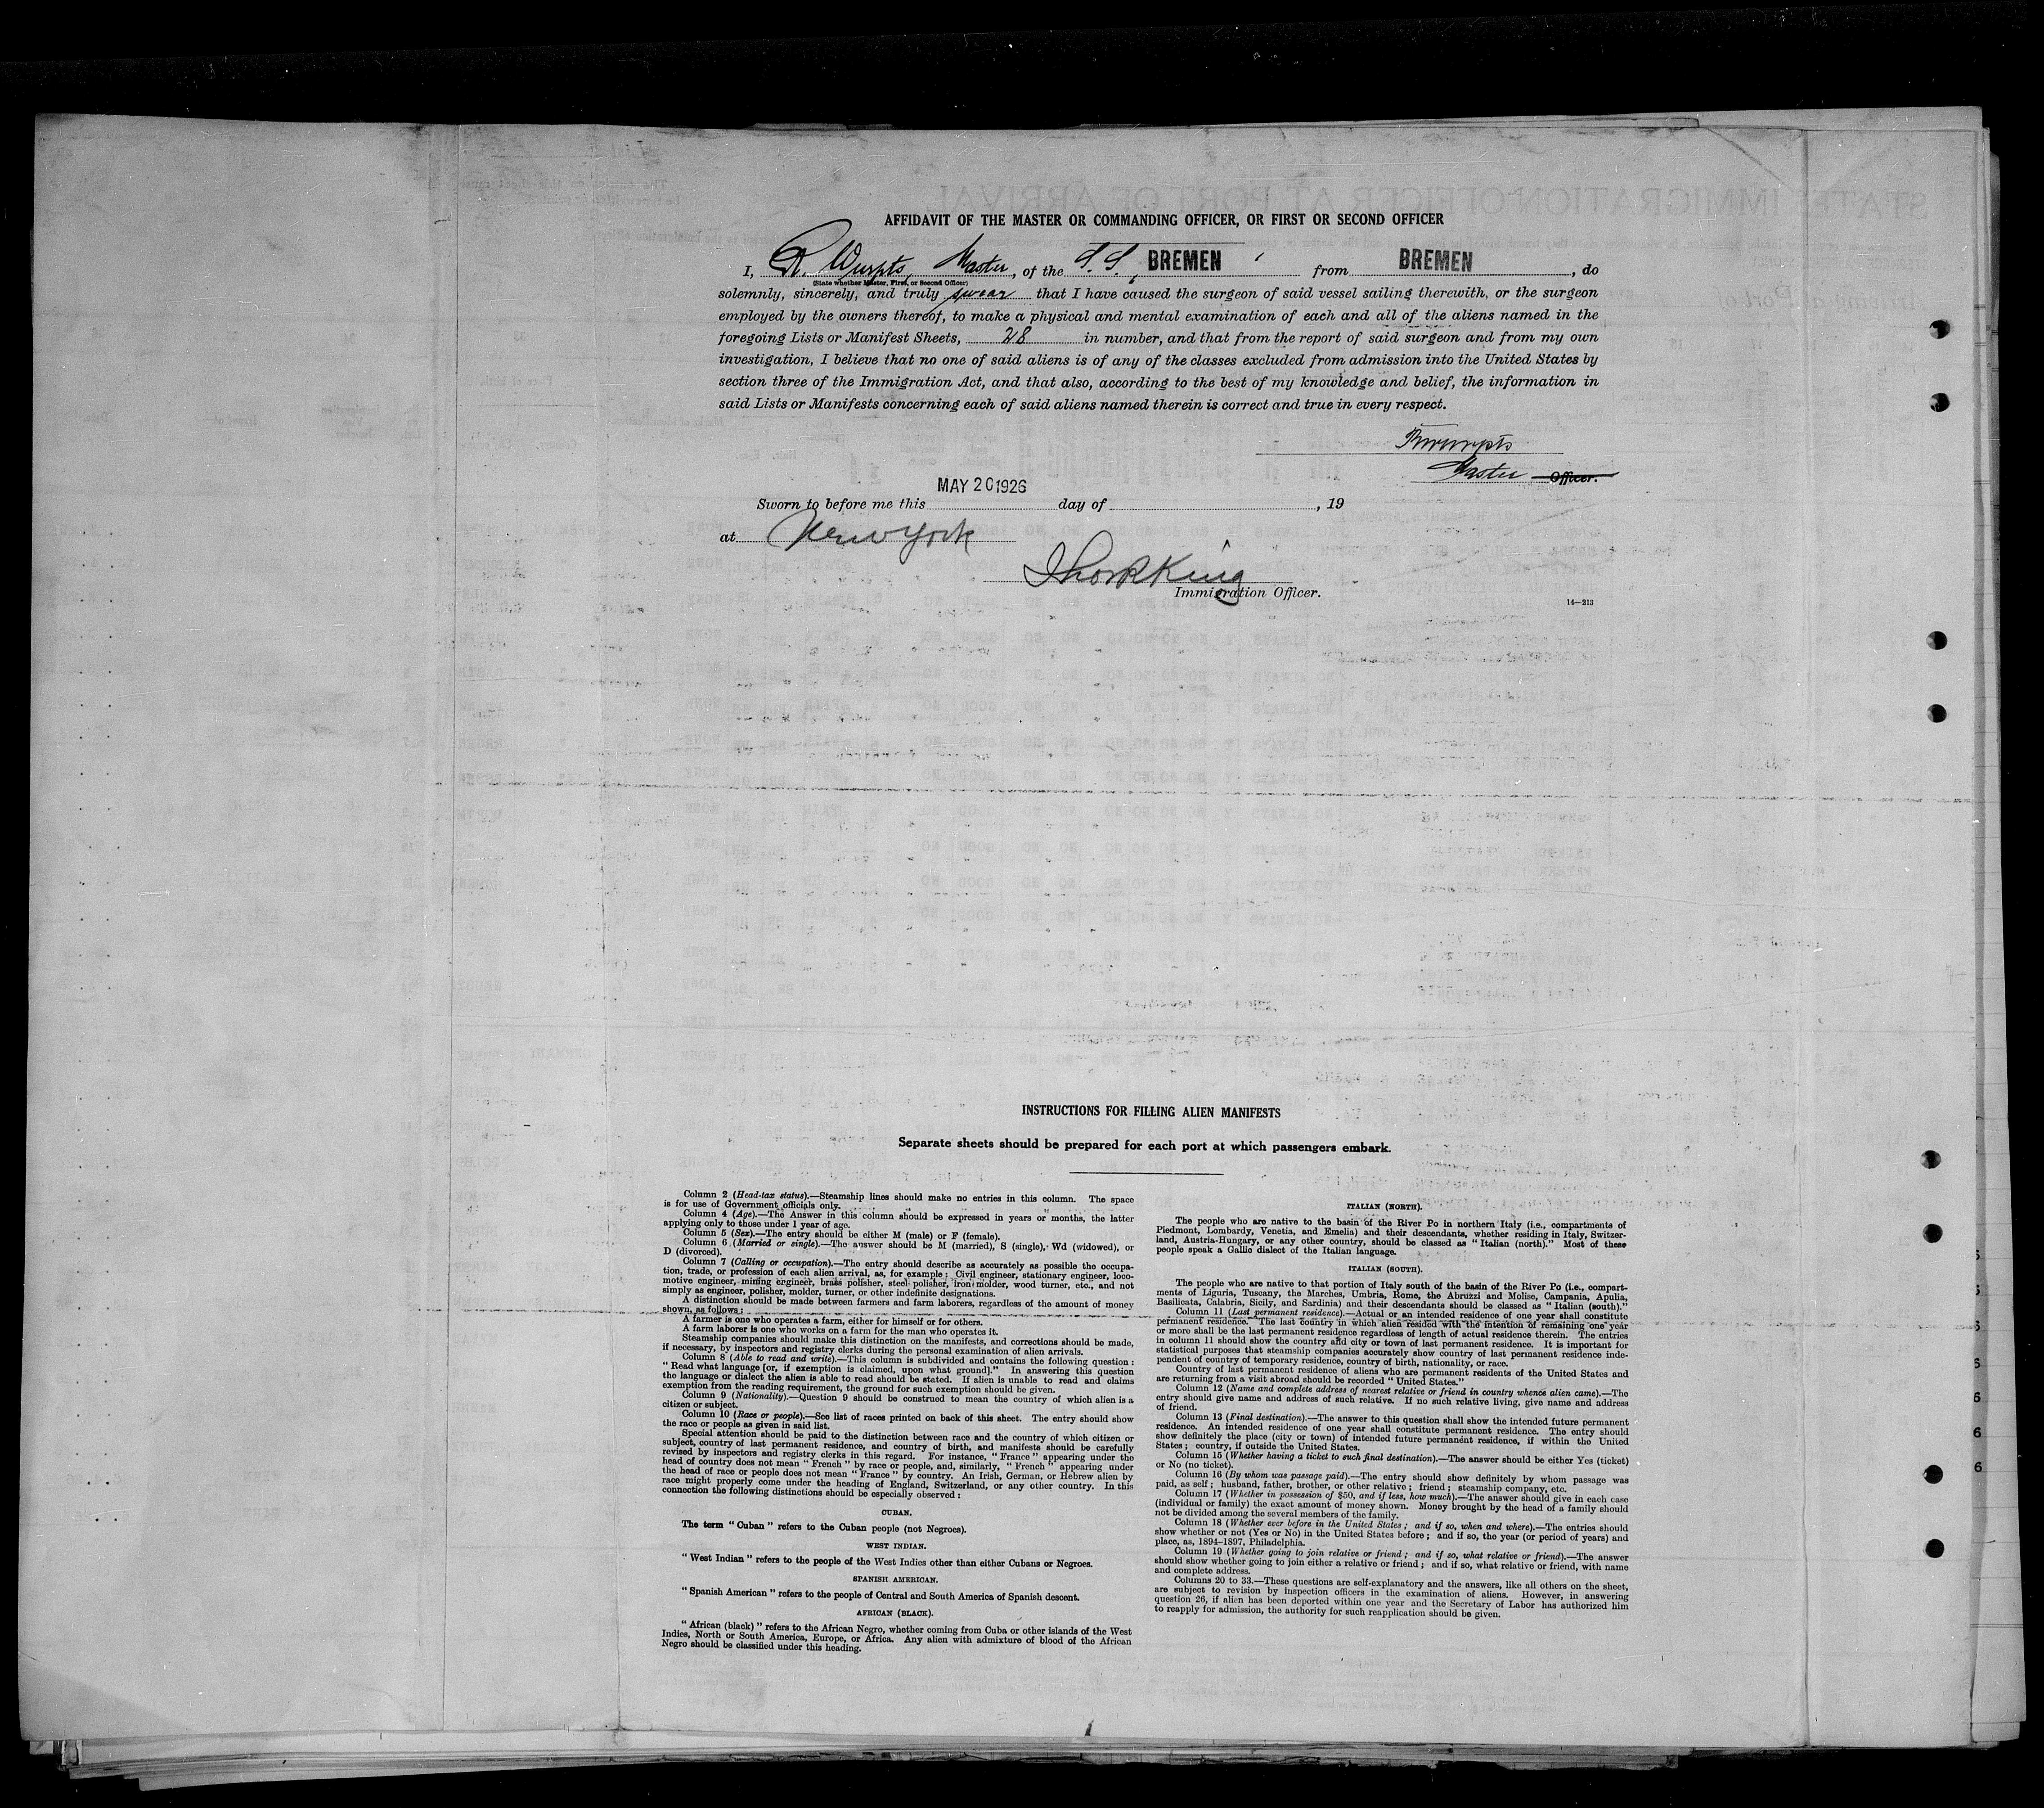 AFFIDAVIT OF THE MASTER OR COMMANDING OFFICER, OR FIRST OR SECOND OFFICER
I, R. Wurpts, Master, of the S.S. BREMEN from BREMEN, do
(State whether Master, First, or Second Officer)
solemnly, sincerely, and truly swear that I have caused the surgeon of said vessel sailing therewith, or the surgeon
employed by the owners thereof, to make a physical and mental examination of each and all of the aliens named in the
foregoing Lists or Manifest Sheets, 28 in number, and that from the report of said surgeon and from my own
investigation, I believe that no one of said aliens is of any of the classes excluded from admission into the United States by
section three of the Immigration Act, and that also, according to the best of my knowledge and belief, the information in
said Lists or Manifests concerning each of said aliens named therein is correct and true in every respect.
RWurpts
Master Officer.
MAY 20 1926
Sworn to before me this day of , 19
at New York
King
Immigration Officer.
14—213
INSTRUCTIONS FOR FILLING ALIEN MANIFESTS
Separate sheets should be prepared for each port at which passengers embark.
Column 2 (Head-tax status).—Steamship lines should make no entries in this column. The space
is for use of Government officials only.
Column 4 (Age).—The Answer in this column should be expressed in years or months, the latter
applying only to those under 1 year of age.
Column 5 (Sex).—The entry should be either M (male) or F (female).
Column 6 (Married or single).—The answer should be M (married), S (single), Wd (widowed), or
D (divorced).
Column 7 (Calling or occupation).—The entry should describe as accurately as possible the occupa-
tion, trade, or profession of each alien arrival, as, for example: Civil engineer, stationary engineer, loco-
motive engineer, mining engineer, brass polisher, steel polisher, iron molder, wood turner, etc., and not
simply as engineer, polisher, molder, turner, or other indefinite designations.
A distinction should be made between farmers and farm laborers, regardless of the amount of money
shown, as follows:
A farmer is one who operates a farm, either for himself or for others.
A farm laborer is one who works on a farm for the man who operates it.
Steamship companies should make this distinction on the manifests, and corrections should be made,
if necessary, by inspectors and registry clerks during the personal examination of alien arrivals.
Column 8 (Able to read and write).—This column is subdivided and contains the following question:
"Read what language [or, if exemption is claimed, upon what ground]." In answering this question
the language or dialect the alien is able to read should be stated. If alien is unable to read and claims
exemption from the reading requirement, the ground for such exemption should be given.
Column 9 (Nationality).—Question 9 should be construed to mean the country of which alien is a
citizen or subject.
Column 10 (Race or people).—See list of races printed on back of this sheet. The entry should show
the race or people as given in said list.
Special attention should be paid to the distinction between race and the country of which citizen or
subject, country of last permanent residence, and country of birth, and manifests should be carefully
revised by inspectors and registry clerks in this regard. For instance, "France" appearing under the
head of country does not mean "French" by race or people, and, similarly, "French" appearing under
the head of race or people does not mean "France" by country. An Irish, German, or Hebrew alien by
race might properly come under the heading of England, Switzerland, or any other country. In this
connection the following distinctions should be especially observed:
CUBAN.
The term "Cuban" refers to the Cuban people (not Negroes).
WEST INDIAN.
"West Indian" refers to the people of the West Indies other than either Cubans or Negroes.
SPANISH AMERICAN.
"Spanish American" refers to the people of Central and South America of Spanish descent.
AFRICAN (BLACK).
"African (black)" refers to the African Negro, whether coming from Cuba or other islands of the West
Indies, North or South America, Europe, or Africa. Any alien with admixture of blood of the African
Negro should be classified under this heading.
ITALIAN (NORTH).
The people who are native to the basin of the River Po in northern Italy (i.e., compartments of
Piedmont, Lombardy, Venetia, and Emelia) and their descendants, whether residing in Italy, Switzer-
land, Austria-Hungary, or any other country, should be classed as "Italian (north)." Most of these
people speak a Gallic dialect of the Italian language.
ITALIAN (SOUTH).
The people who are native to that portion of Italy south of the basin of the River Po (i.e., compart-
ments of Liguria, Tuscany, the Marches, Umbria, Rome, the Abruzzi and Molise, Campania, Apulia,
Basilicata, Calabria, Sicily, and Sardinia) and their descendants should be classed as "Italian (south)."
Column 11 (Last permanent residence).—Actual or an intended residence of one year shall constitute
permanent residence. The last country in which alien resided with the intention of remaining one year
or more shall be the last permanent residence regardless of length of actual residence therein. The entries
in column 11 should show the country and city or town of last permanent residence. It is important for
statistical purposes that steamship companies accurately show country of last permanent residence inde-
pendent of country of temporary residence, country of birth, nationality, or race.
Country of last permanent residence of aliens who are permanent residents of the United States and
are returning from a visit abroad should be recorded "United States."
Column 12 (Name and complete address of nearest relative or friend in country whence alien came).—The
entry should give name and address of such relative. If no such relative living, give name and address
of friend.
Column 13 (Final destination).—The answer to this question shall show the intended future permanent
residence. An intended residence of one year shall constitute permanent residence. The entry should
show definitely the place (city or town) of intended future permanent residence, if within the United
States; country, if outside the United States.
Column 15 (Whether having a ticket to such final destination).—The answer should be either Yes (ticket)
or No (no ticket).
Column 16 (By whom was passage paid).—The entry should show definitely by whom passage was
paid, as self; husband, father, brother, or other relative; friend; steamship company, etc.
Column 17 (Whether in possession of $50, and if less, how much).—The answer should give in each case
(individual or family) the exact amount of money shown. Money brought by the head of a family should
not be divided among the several members of the family.
Column 18 (Whether ever before in the United States; and if so, when and where).—The entries should
show whether or not (Yes or No) in the United States before; and if so, the year (or period of years) and
place, as, 1894-1897, Philadelphia.
Column 19 (Whether going to join relative or friend; and if so, what relative or friend).—The answer
should show whether going to join either a relative or friend; and if so, what relative or friend, with name
and complete address.
Columns 20 to 33.—These questions are self-explanatory and the answers, like all others on the sheet,
are subject to revision by inspection officers in the examination of aliens. However, in answering
question 26, if alien has been deported within one year and the Secretary of Labor has authorized him
to reapply for admission, the authority for such reapplication should be given.